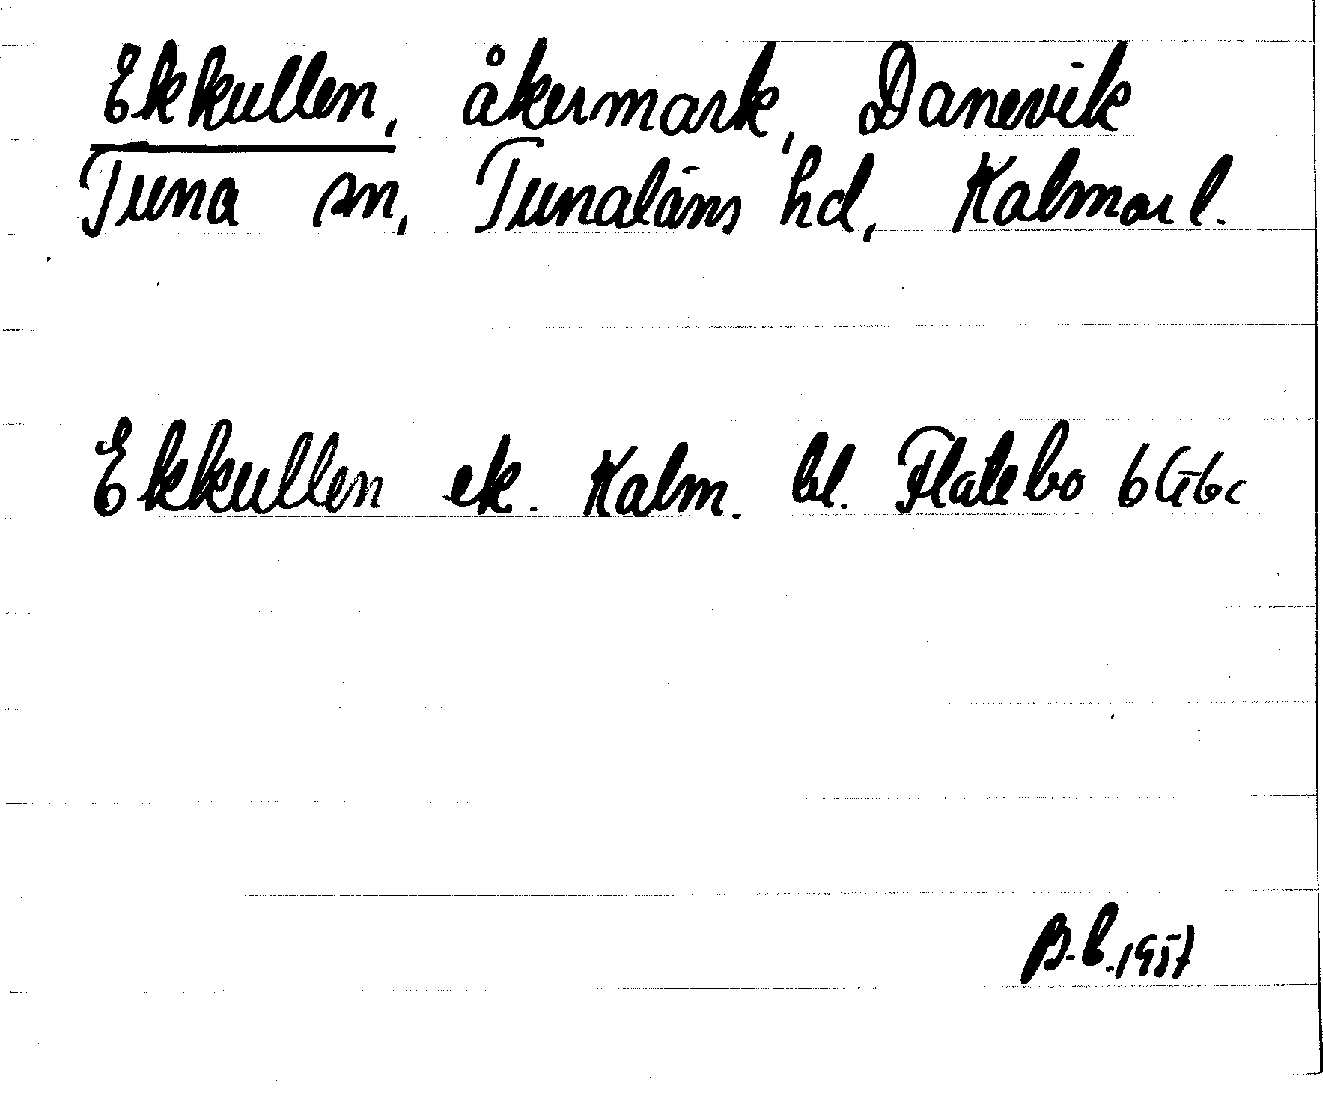 Ekkullen, åkermark, Danevik
Tuna sn, Tunaläns hd, Kalmar l.
Ekkullen ek. Kalm. bl. Flatebo 6G6c
B.L. 1957